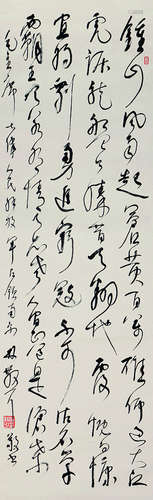 鍾山風雨起蒼黃百萬雄師過大江
虎踞龍盤今勝昔天翻地覆慨而慷
宜將剩勇追窮寇不可沽名學
霸王天若有情天亦老人間正道是滄桑
毛主席七律人民解放軍占領南京